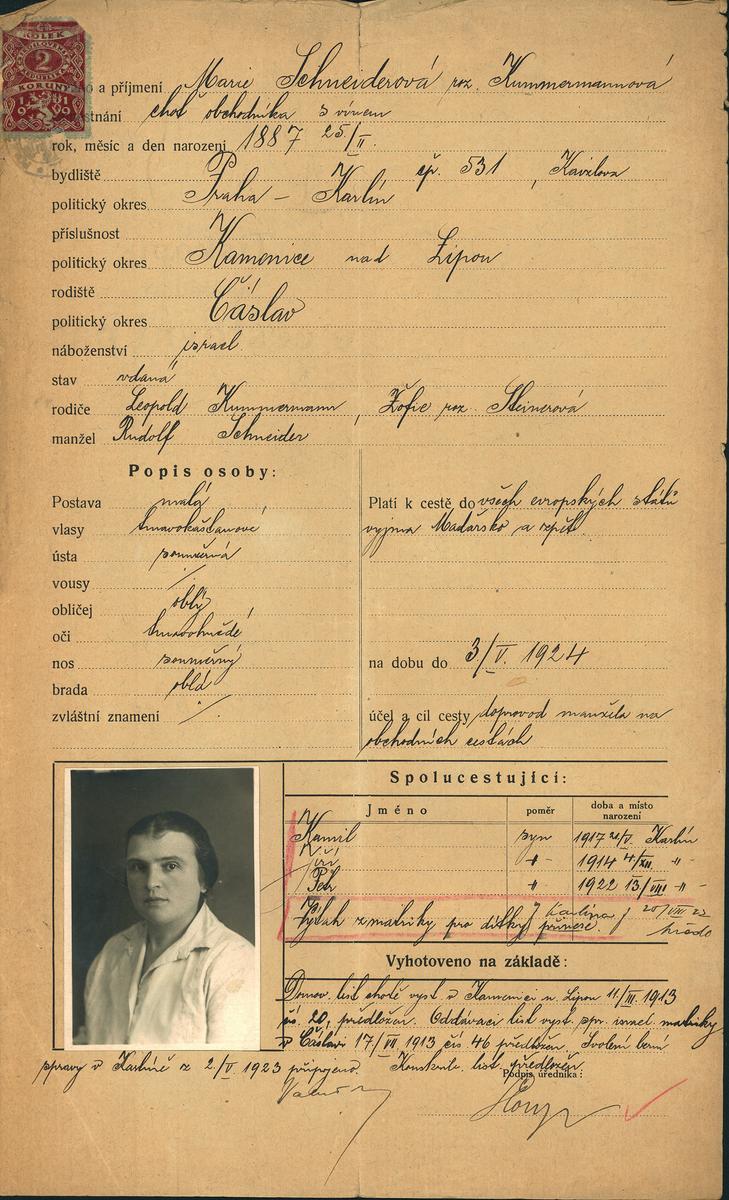 KOLEK
2
KORUNY
1919
o a příjmení Marie Schneiderová roz. Kummermannová
stnání choť obchodníka s vínem
rok, měsíc a den narození 1887 25/II.
bydliště čp. 531, 
politický okres Praha - Karlín
příslušnost
politický okres Kamenice nad Lipou
rodiště
politický okres Čáslav
náboženství israel.
stav vdaná
rodiče Leopold Kummermann, Žofie roz. Steinerová
manžel Rudolf Schneider
Popis osoby:
Postava malá
vlasy tmavokaštanové
ústa souměrná
vousy /
obličej oblý
oči tmavohnědé
nos souměrný
brada oblá
zvláštní znamení /.
Platí k cestě do všech evropských států
vyjma Maďarsko a zpět.
na dobu do 3/V. 1924
účel a cíl cesty doprovod manžela na
obchodních cestách
Spolucestující:
Jméno poměr doba a místo narození
Kamil syn 1917 /V. Karlín
Jiří -"- 1914 4/XII. -"-
Petr " 1922 13/VIII -"-
Výtah z matriky pro dítky přinese.
Vyhotoveno na základě:
Domov. list chotě vyst. v Kamenici n. Lipou 11/III. 1913
čís. 20, předložen. Oddávací list vyst. spr. israel. matriky
v Čáslavi 17/VII 1913 čís 46 předložen. Svolení berní
správy v Karlíně z 2/V 1923 připojeno. list. předložen.
Podpis úředníka: